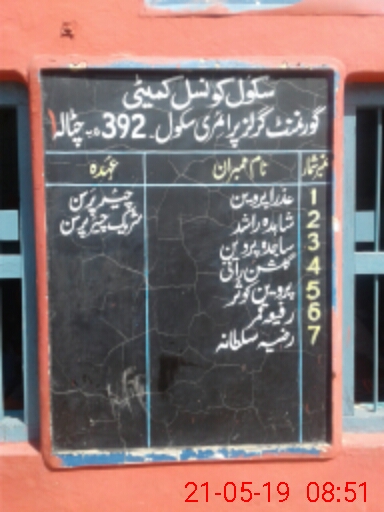 سکول کونسل کمیٹی
گورنمنٹ گرلز پرائمری سکول۔ 392 گ۔ب چٹالہ
نمبر شمار نام ممبران عہدہ
1 عذرا پروین چیئر پرسن
2 شاہدہ راشد شریک چیئر پرسن
3 ساجدہ پروین
4 گلشن رانی
5 پروین کوثر
6 رفیعہ قمر
7 رضیہ سلطانہ
21-05-19 08:51